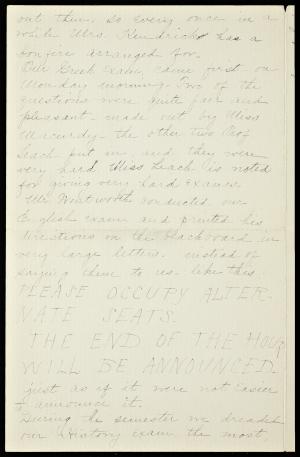 out them. So every once in a
while Mrs. Kendricks has a
bonfire arranged for.
Our Greek exam, came first on
Monday morning. Two of the
questions were quite fair and
pleasant - made out by Miss
McCurdy - the other two Prof
Leach put in, and they were
very hard. Miss Leach is noted
for giving very hard exams.
Mr. Wentworth conducted our
English exam and printed his
directions on the blackboard in
very large letters. instead of
saying them to us - like this
PLEASE OCCUPY ALTER-
NATE SEATS.
THE END OF THE HOUR
WILL BE ANNOUNCED.
just as if it were not easier
to announce it.
During the semester we dreaded
our History exam the most,